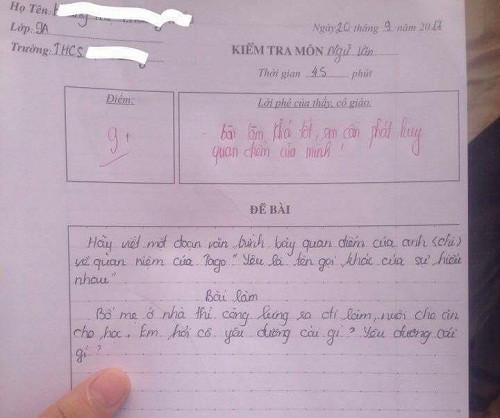 Họ Tên:
Lớp: 9A
Trường: THCS
Ngày 20 tháng 9 năm 2017
KIỂM TRA MÔN Ngữ Văn
Thời gian 45 phút
Điểm:
9+
Lời phê của thầy, cô giáo.
Bài làm khá tốt, em cần phát huy
quan điểm của mình!
ĐỀ BÀI
Hãy viết một đoạn văn trình bày quan điểm của anh (chị)
về quan niệm của Tago "Yêu là tên gọi khác của sự hiểu
nhau"
Bài làm
Bố mẹ ở nhà thì còng lưng ra đi làm, nuôi cho ăn
cho học. Em hỏi cô yêu đương cái gì? Yêu đương cái
gì?